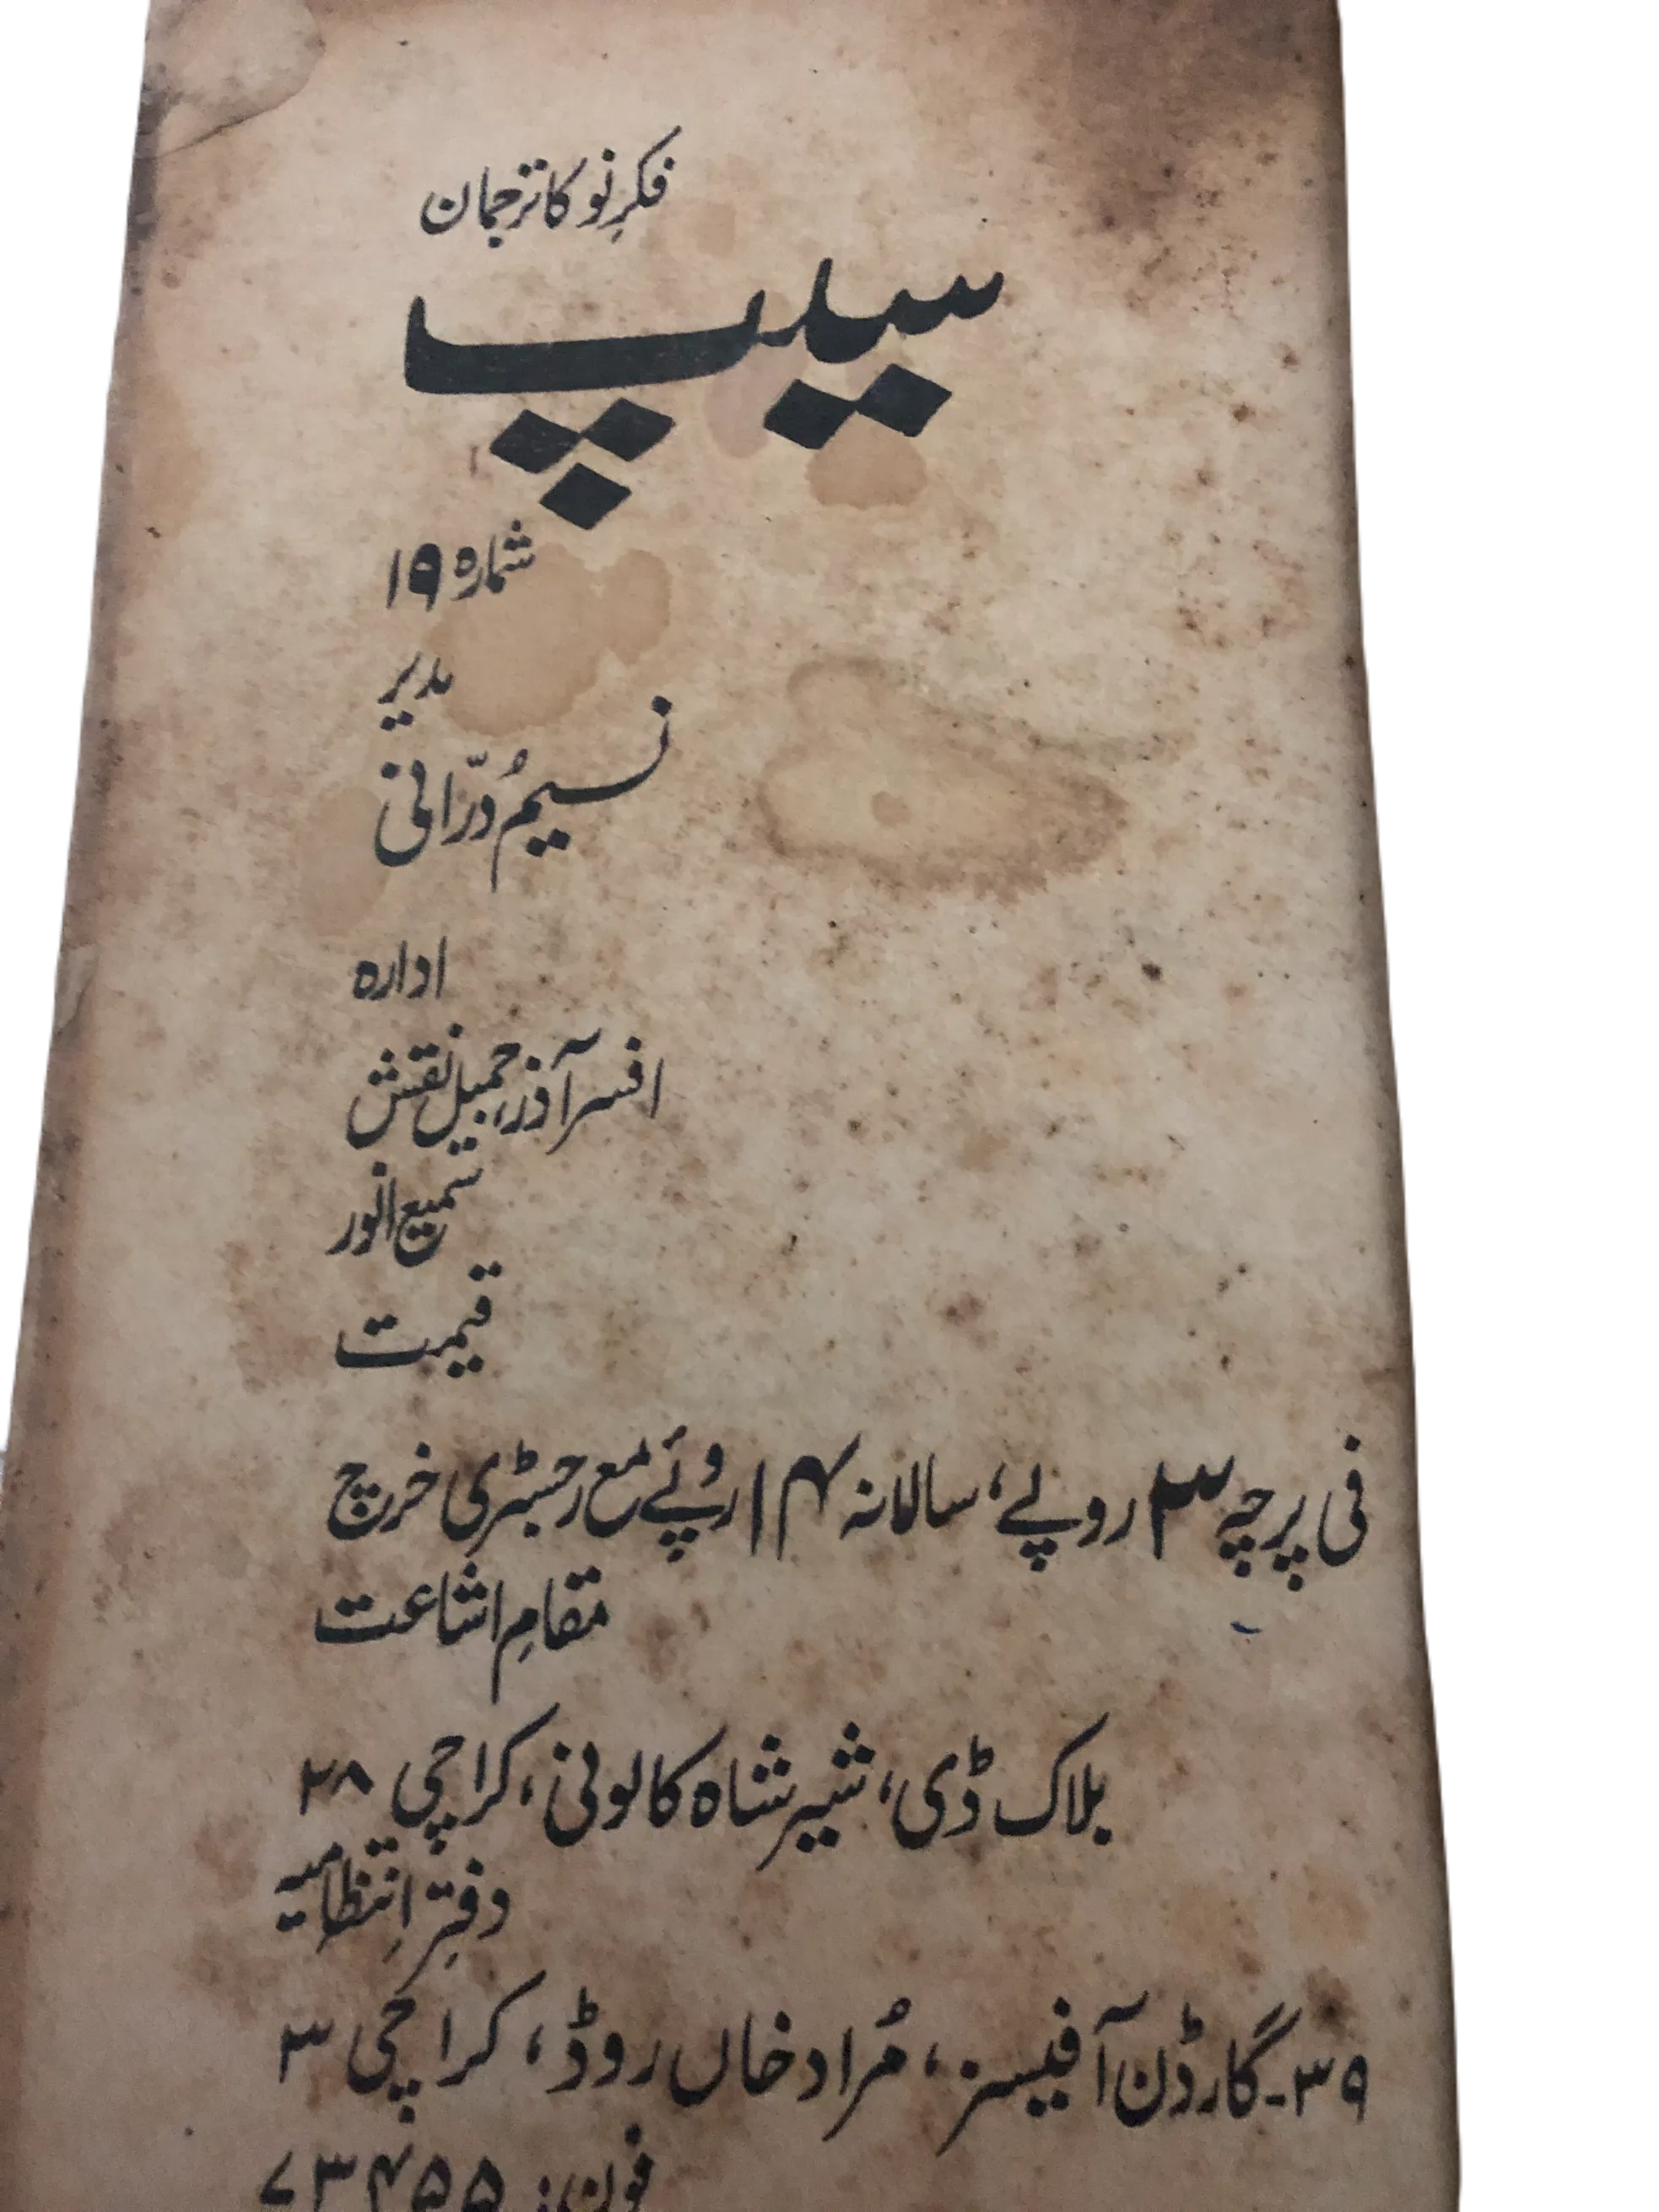 فکرِ نو کا ترجمان
سیپ
شمارہ ۱۹
مدیر
نسیم دُرّانی
ادارہ
افسر آذر، جمیل نقش
سمیع انور
قیمت
فی پرچہ ۳ روپے، سالانہ ۱۴ روپئے مع رجسٹری خرچ
مقامِ اشاعت
بلاک ڈی، شیر شاہ کالونی، کراچی ۲۸
دفترِ انتظامیہ
۳۹-گارڈن آفیسز، مُراد خاں روڈ، کراچی ۳
فون: ۷۳۴۵۵